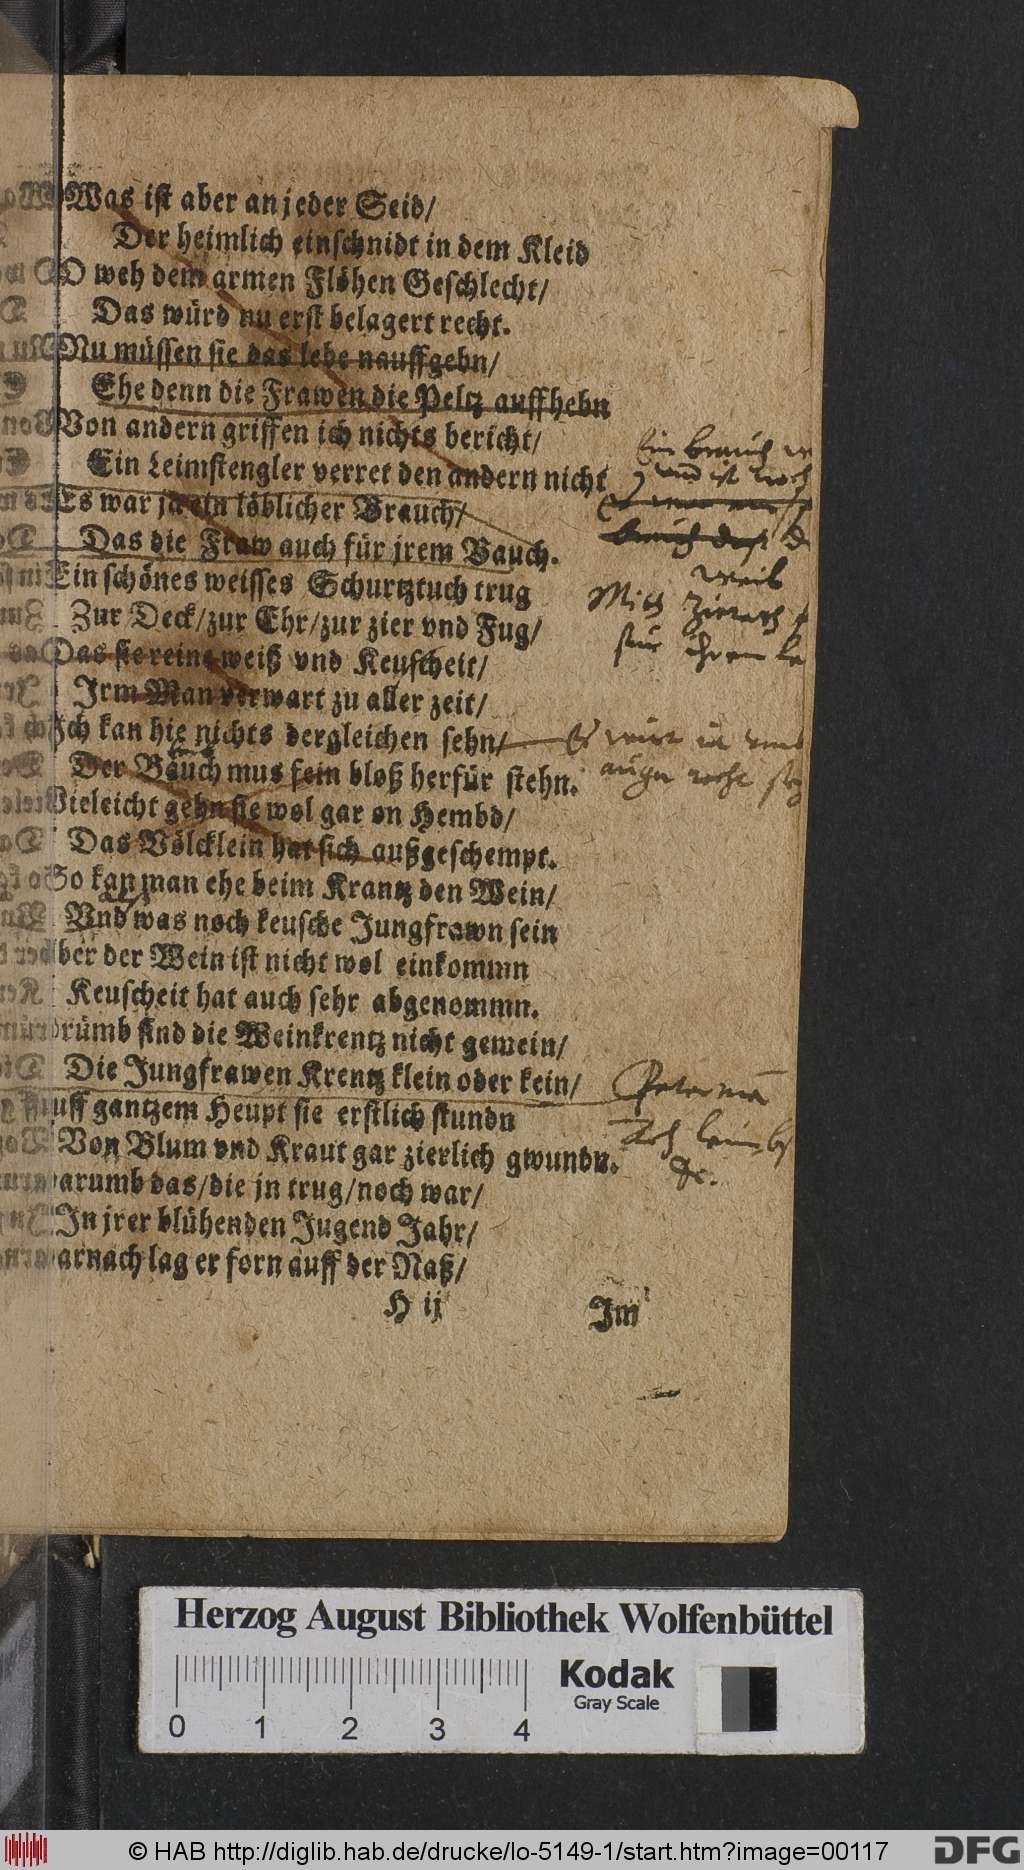 Was ist aber an jeder Seid/
Der heimlich einschnidt in dem Kleid
O weh dem armen Flöhen Geschlecht/
Das würd nu erst belagert recht.
Nu müssen sie das lebe nauffgebn/
Ehe denn die Frawen die Peltz auffhebn
Von andern griffen ich nichts bericht/
Ein Leimstengler verret den andern nicht
Es war ja ein löblicher Brauch/
Das die Fraw auch für jrem Bauch.
Ein schönes weisses Schurtztuch trug
Zur Deck/zur Ehr/zur zier vnd Fug/
Das sie reine weiß vnd Keuscheit/
Jrm Man verwart zu aller zeit/
Ich kan hie nichts dergleichen sehn/
Der Bauch mus fein bloß herfür stehn.
Vieleicht gehn sie wol gar on Hembd/
Das Völcklein hat sich außgeschempt.
So kan man ehe beim Krantz den Wein/
Vnd was noch keusche Jungfrawn sein
ber der Wein ist nicht wol einkommn
Keuscheit hat auch sehr abgenommn.
rümb sind die Weinkrentz nicht gemein/
Die Jungfrawen Krentz klein oder kein/
uff gantzem Heupt sie erstlich stundn
Von Blum vnd Kraut gar zierlich gwundn.
arumb das/die jn trug/noch war/
In jrer blühenden Jugend Jahr/
arnach lag er forn auff der Naß/
H ij Im
Ein brauch
vnd ist noch
weib
Es
augen recht
&c.
Herzog August Bibliothek Wolfenbüttel
Kodak
Gray Scale
0 1 2 3 4
© HAB http://diglib.hab.de/drucke/lo-5149-1/start.htm?image=00117
DFG